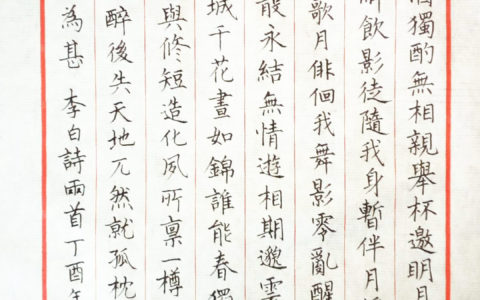 獨酌無相親舉杯邀明月
解飲影徒隨我身暫伴月
歌月徘徊我舞影零亂醒
散永結無情遊相期邈雲
城千花晝如錦誰能春獨
與修短造化夙所稟一樽
醉後失天地兀然就孤枕
為甚 李白詩兩首丁酉年